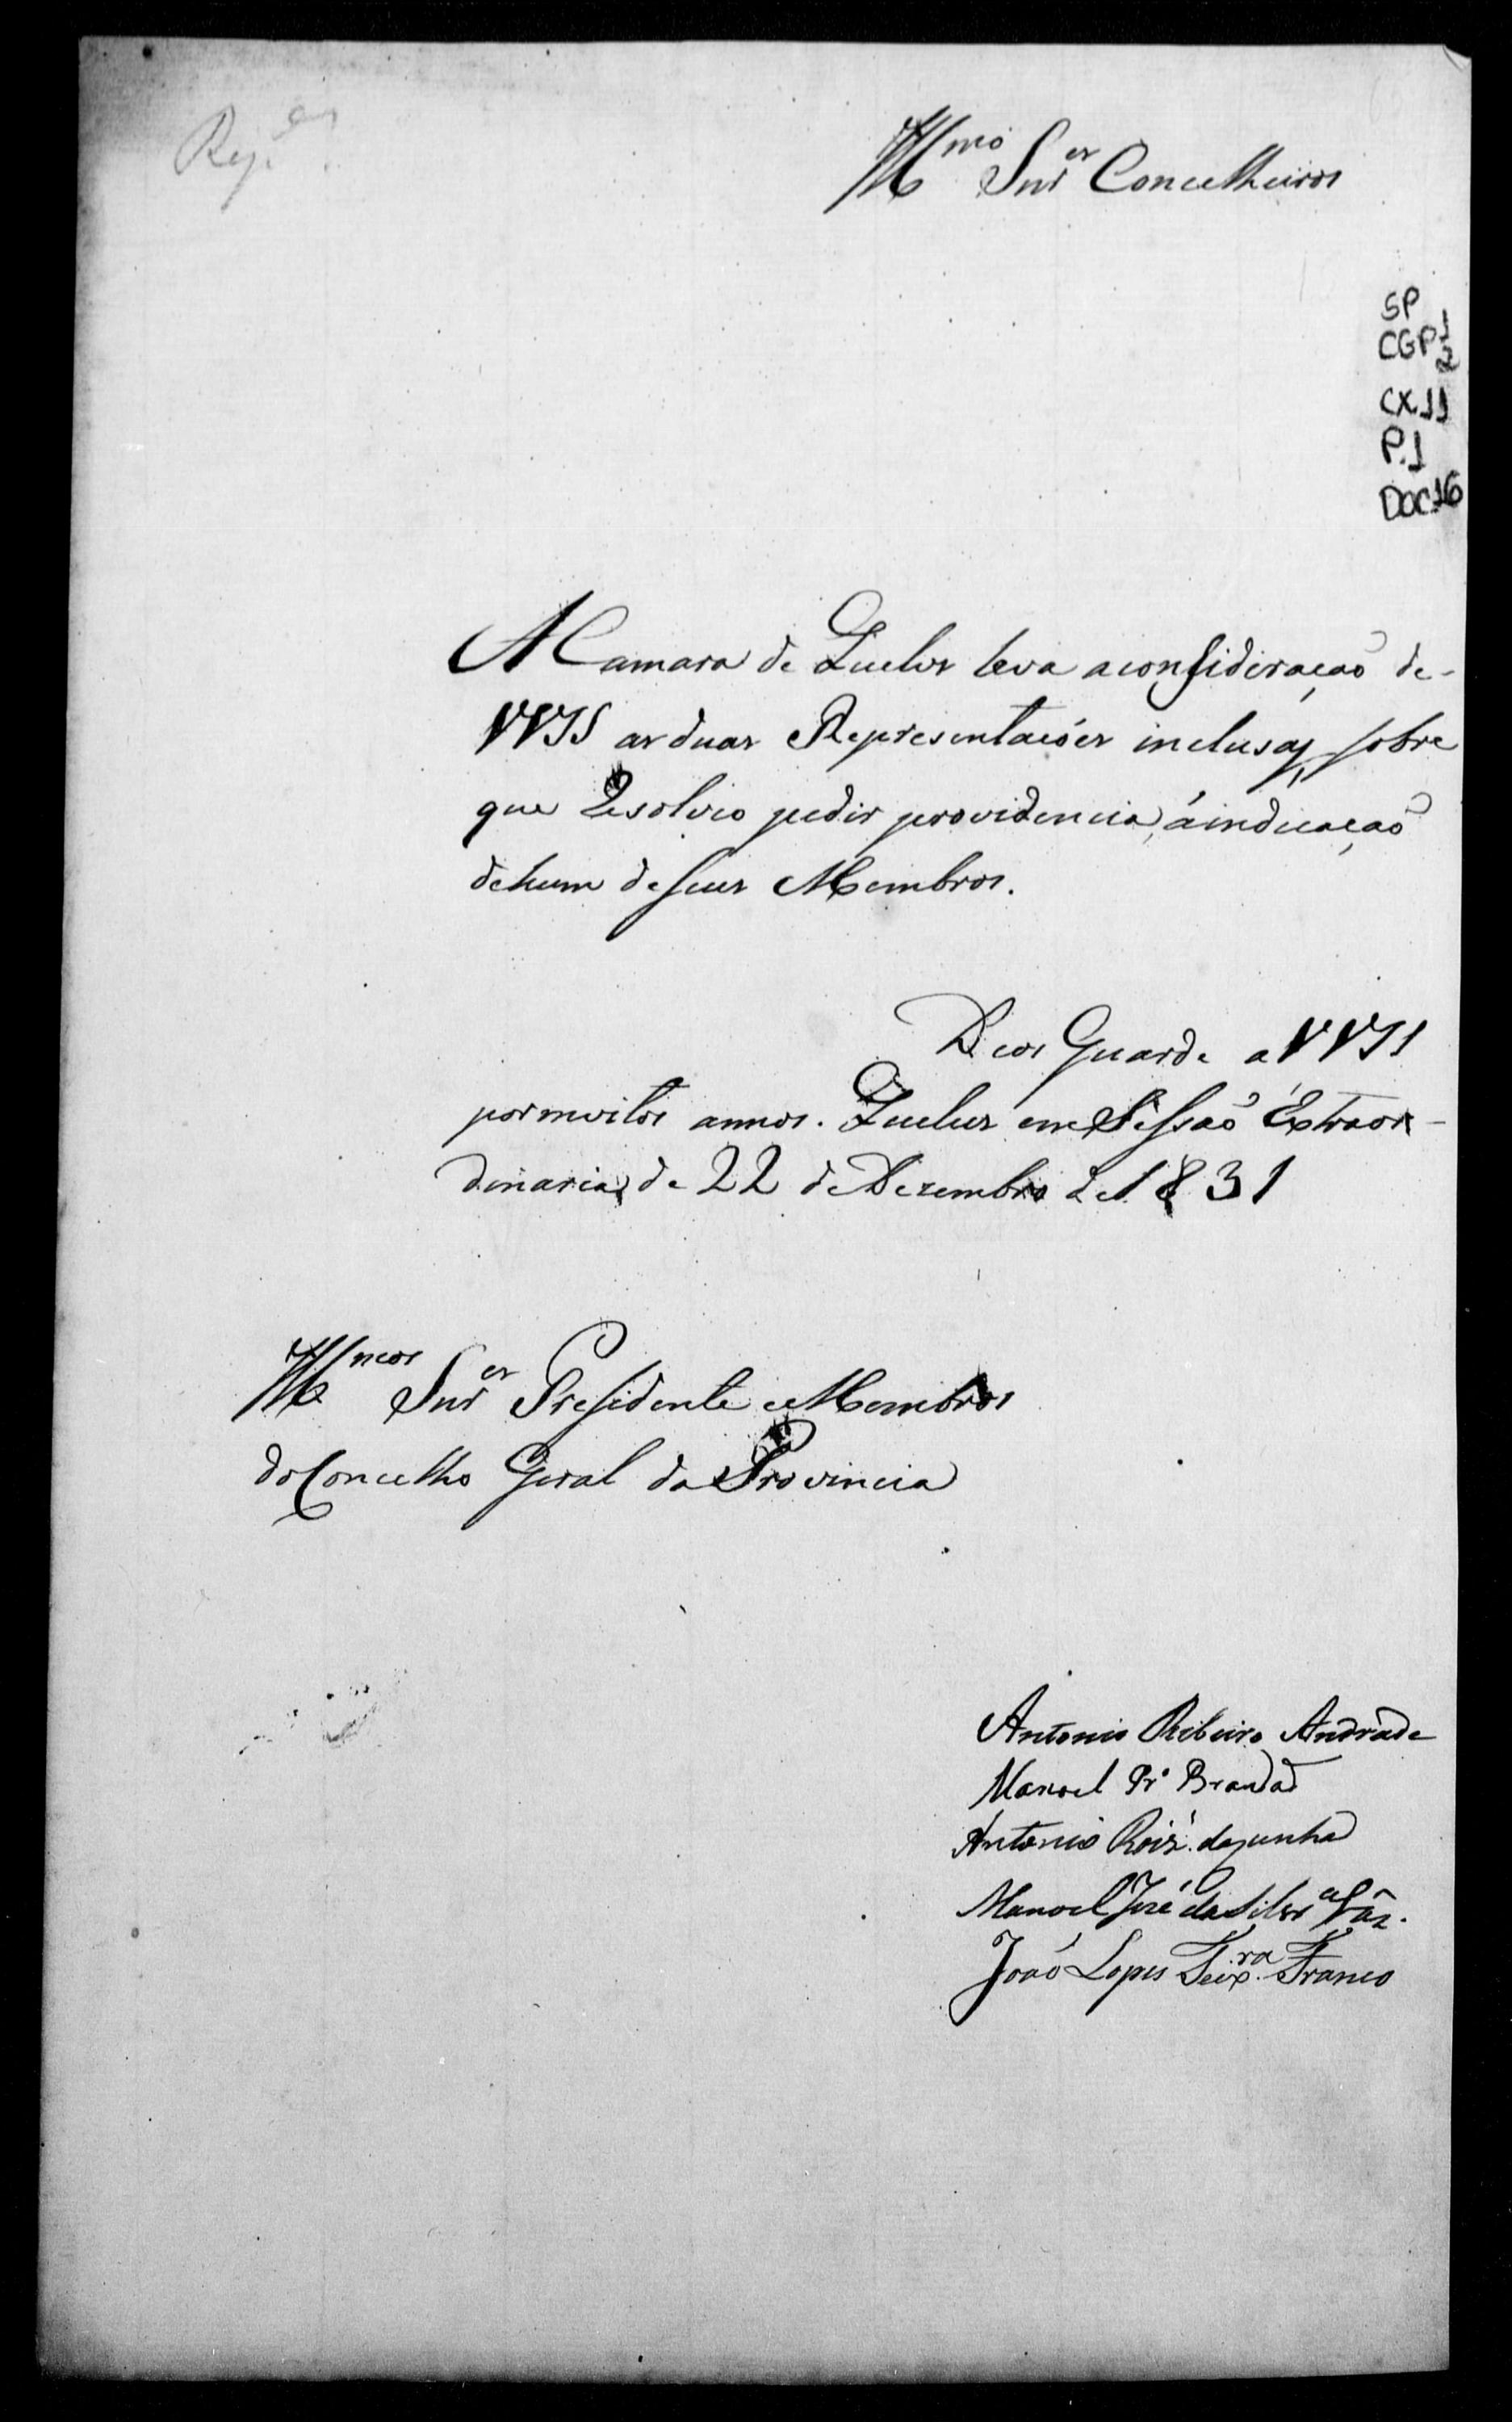 Illmos Snres Concelheiros
SP
CGP 1
2
CX.11
P.1
DOC.16
A Camara de Queluz leva a consideração de-
VVSS as duas Reprezentacóes inclusas, sobre
que Resolveo pedir providencia, á indicação
de hum de seus Membros.
Deos Guarde a VVSS
por muitos annos. Queluz em Sessaõ Extraor-
dinaria de 22 de Dezembro de 1831
Illmos Snres Presidente e Membros
do Concelho Geral da Provincia
Antonio Ribeiro Andrade
Manoel Pr.ª Brandaõ
Antonio Roiz. da Cunha
Manoel José da Silva Vaz.
Joaõ Lopes Teixra. Franco